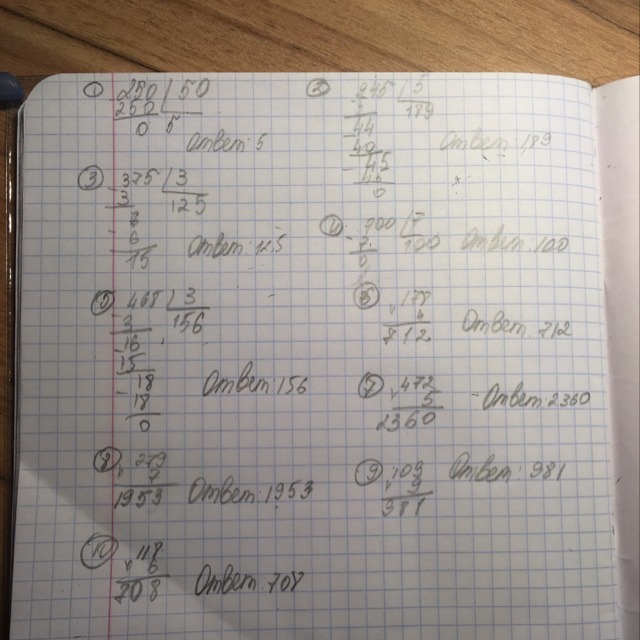 ① 250 | 50
250
0 5
Ответ: 5
② 5
189
44
40
45
45
0
Ответ: 189
③ 375 | 3
3 125
6
15
Ответ:
④ 700 | 7
7 100
0
Ответ: 100
⑤ 468 | 3
3 156
16
15
18
18
0
Ответ: 156
⑥ 178
712
Ответ: 712
⑦ 472
5
2360
Ответ: 2360
1953
Ответ: 1953
⑨ 109
981
Ответ: 981
⑩
708
Ответ: 708